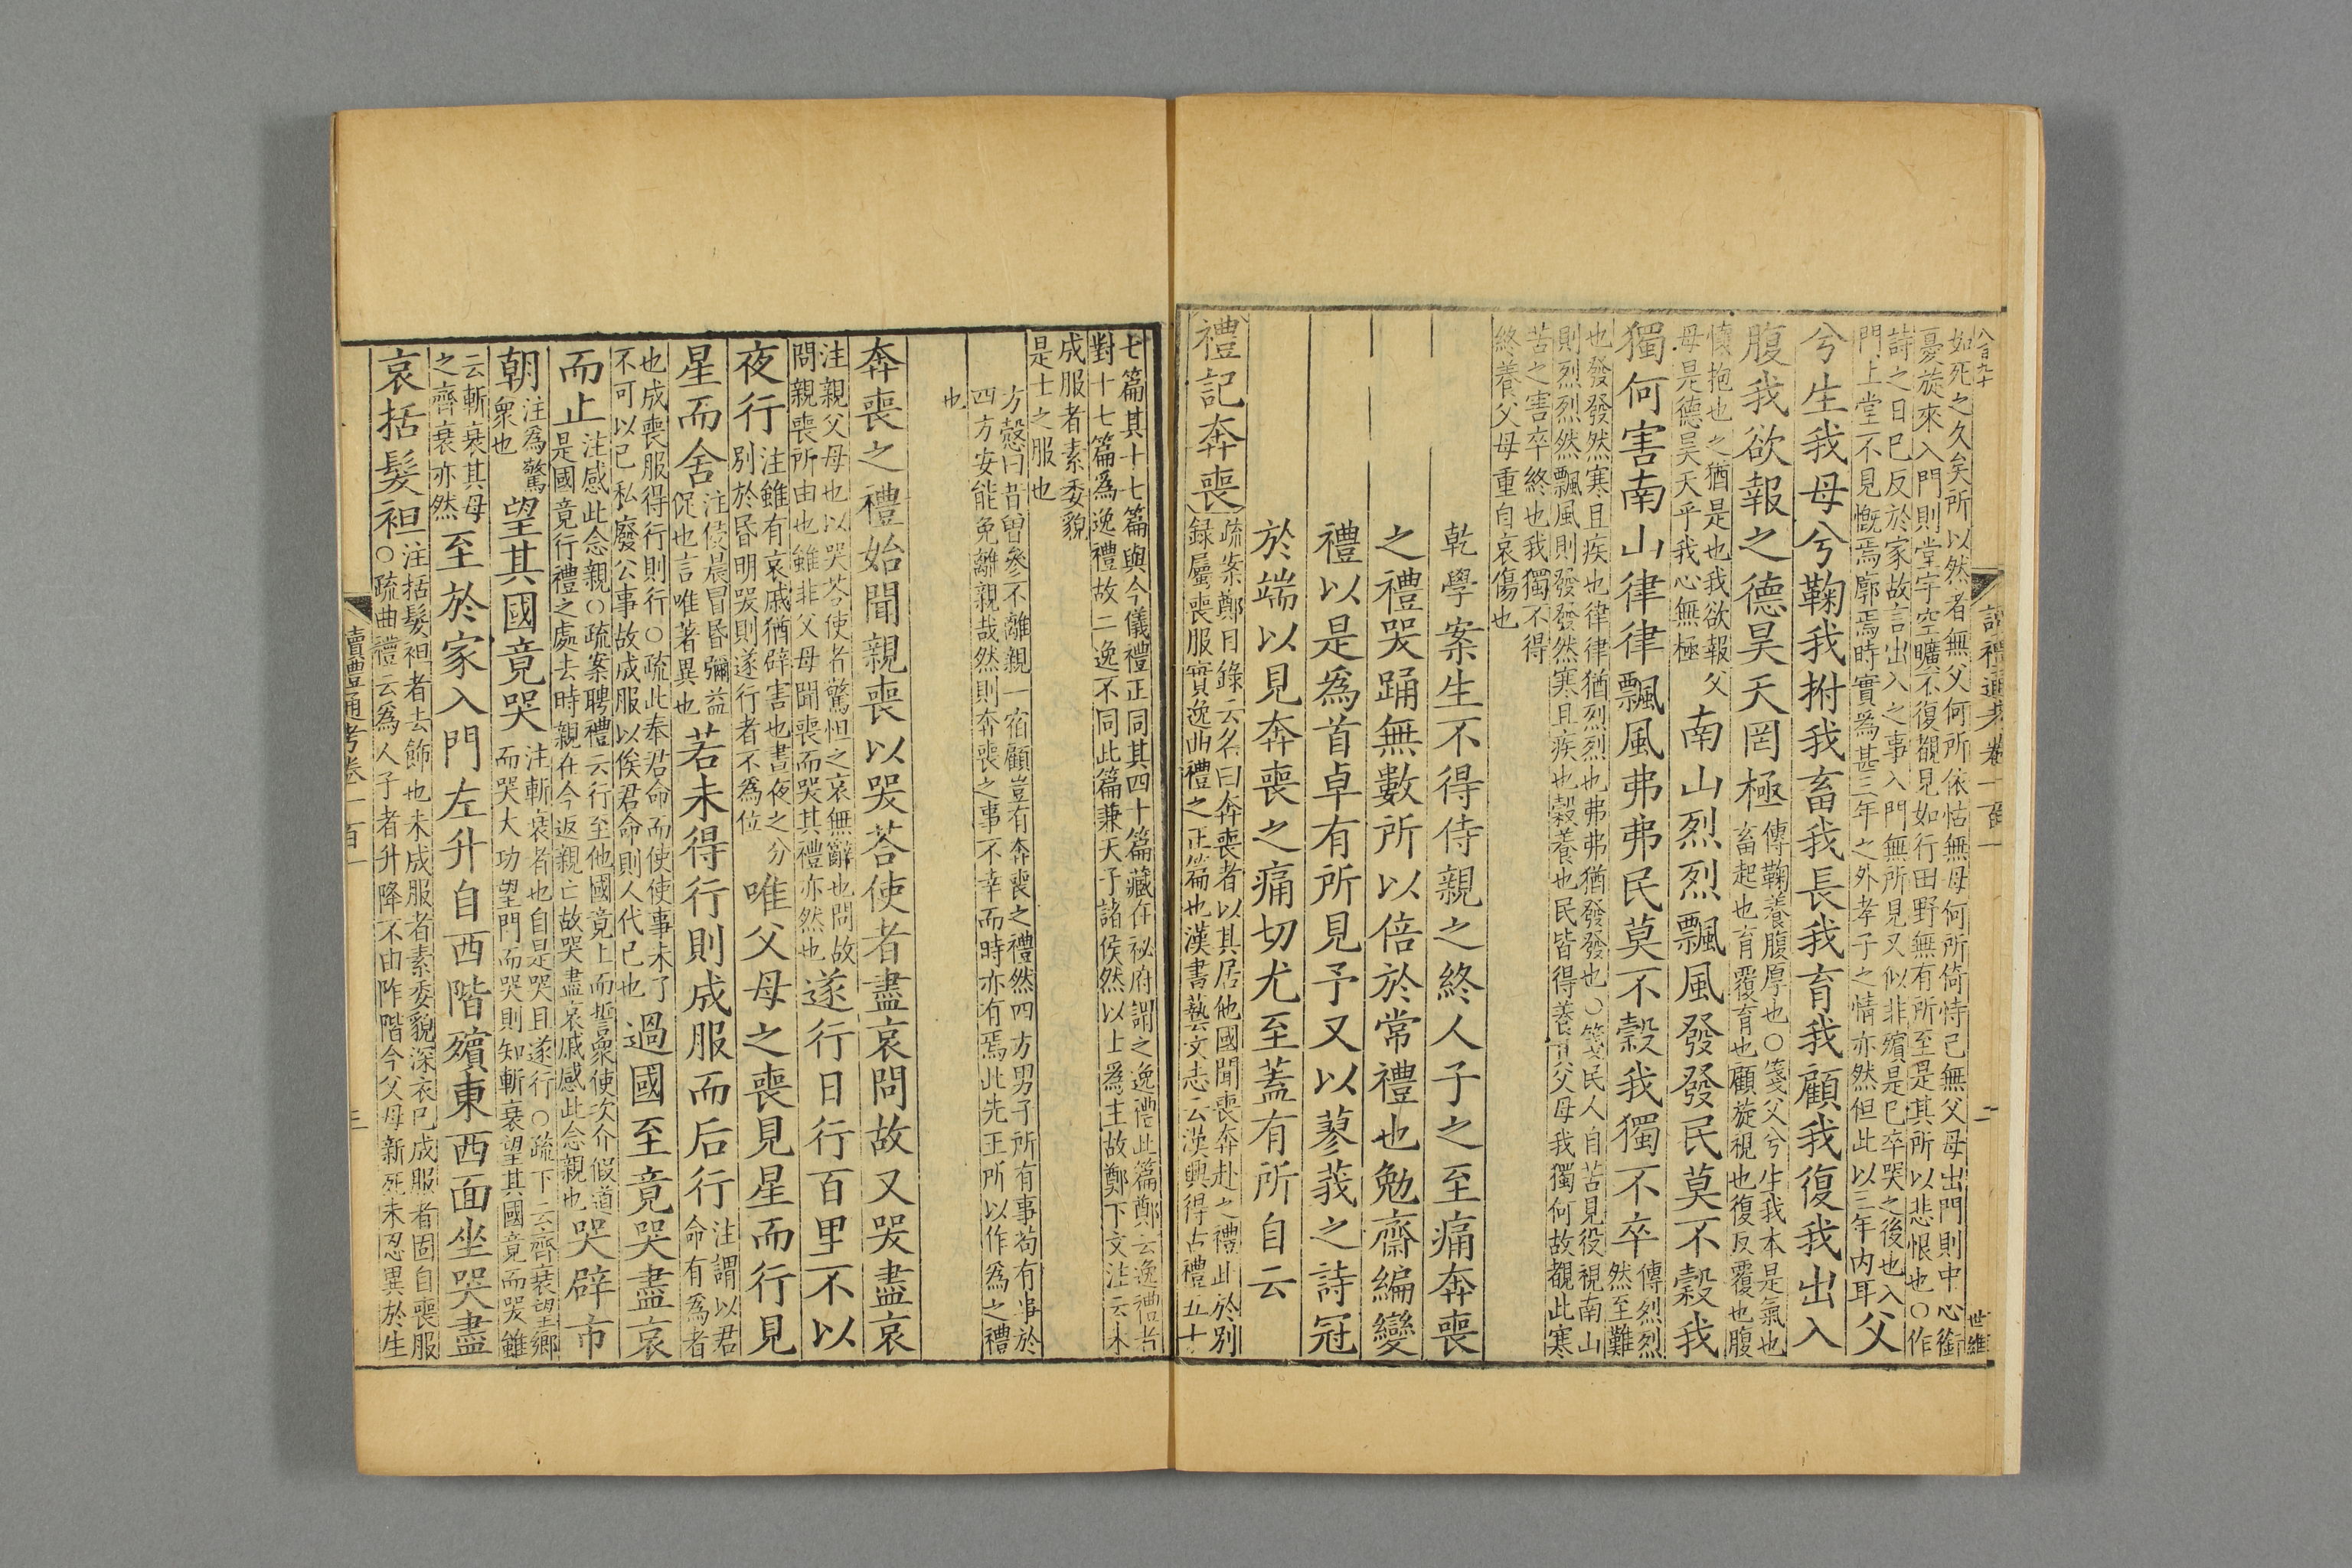 八百九十
如死之久矣所以然者無父何所依怙無母何所倚恃己無父母出門則中心銜
憂旋來入門則堂宇空曠不復覩見如行田野無有所至是其所以悲恨也○作
詩之日已反於家故言出入之事入門無所見又似非殯是已卒哭之後也入
門上堂不見慨焉廓焉時實為甚三年之外孝子之情亦然但此以三年內耳
父
兮生我母兮鞠我拊我畜我長我育我顧我復我出入
腹我欲報之德昊天罔極
傳鞠養腹厚也○箋父兮生我本是氣也
畜起也育覆育也顧旋視也復反覆也腹
懷抱也之猶是也我欲報父
母是德昊天乎我心無極
南山烈烈飄風發發民莫不穀我
獨何害南山律律飄風弗弗民莫不穀我獨不卒
傳烈烈
然至難
也發發然寒且疾也律律猶烈烈也弗弗猶發發也○箋民人自苦見役視南山
則烈烈然飄風則發發然寒且疾也穀養也民皆得養其父母我獨何故覩此寒
苦之害卒終也我獨不得
終養父母重自哀傷也
乾學案生不得侍親之終人子之至痛奔喪
之禮哭踊無數所以倍於常禮也勉齋編變
禮以是為首卓有所見予又以蓼莪之詩冠
於端以見奔喪之痛切尤至蓋有所自云
禮記奔喪
疏案鄭目錄云名曰奔喪者以其居他國聞喪奔赴之禮此於別
録屬喪服實逸曲禮之正篇也漢書藝文志云漢興得古禮五十
讀禮通考卷一百一
二
世維
七篇其十七篇與今儀禮正同其四十篇藏在祕府謂之逸禮此篇鄭云逸禮者
對十七篇為逸禮故二逸不同此篇兼天子諸侯然以上為主故鄭下文注云未
成服者素委貌
是士之服也
方慤曰昔曽參不離親一宿顧豈有奔喪之禮然四方男子所有事苟有事於
四方安能免離親哉然則奔喪之事不幸而時亦有焉此先王所以作為之禮
也
奔喪之禮始聞親喪以哭荅使者盡哀問故又哭盡哀
注親父母也以哭荅使者驚怛之哀無辭也問故
問親喪所由也雖非父母聞喪而哭其禮亦然也
遂行日行百里不以
夜行
注雖有哀戚猶辟害也晝夜之分
別於昏明哭則遂行者不為位
唯父母之喪見星而行見
星而舍
注侵晨冒昏彌益
促也言唯著異也
若未得行則成服而后行
注謂以君
命有為者
也成喪服得行則行○疏此奉君命而使使事未了
不可以已私廢公事故成服以俟君命則人代已也
過國至竟哭盡哀
而止
注感此念親○疏案聘禮云行至他國竟上而誓衆使次介假道
是國竟行禮之處去時親在今返親亡故哭盡哀戚感此念親也
哭辟市
朝
注為驚
衆也
望其國竟哭
注斬衰者也自是哭且遂行○疏下云齊衰望鄉
而哭大功望門而哭則知斬衰望其國竟而哭雖
云斬衰其母
之齊衰亦然
至於家入門左升自西階殯東西面坐哭盡
哀括髮袒
注括髮袒者去飾也未成服者素委貌深衣已成服者固自喪服
○疏曲禮云為人子者升降不由阼階今父母新死未忍異於生
讀禮通考卷一百一
三